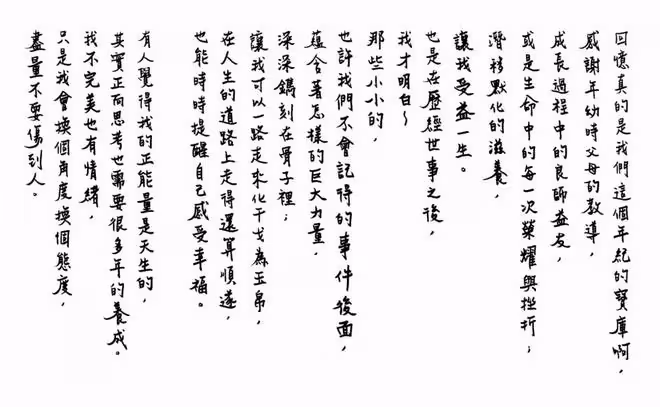 回憶真的是我們這個年紀的寶庫啊，
感謝年幼時父母的教導，
成長過程中的良師益友，
或是生命中的每一次榮耀與挫折；
潛移默化的滋養，
讓我受益一生。
也是在歷經世事之後，
我才明白～
那些小小的，
也許我們不會記得的事件後面，
蘊含著怎樣的巨大力量，
深深鐫刻在骨子裡；
讓我可以一路走來化干戈為玉帛，
在人生的道路上走得還算順遂，
也能時時提醒自己感受幸福。
有人覺得我的正能量是天生的，
其實正向思考也需要很多年的養成。
我不完美也有情緒，
只是我會換個角度換個態度，
盡量不要傷到人。